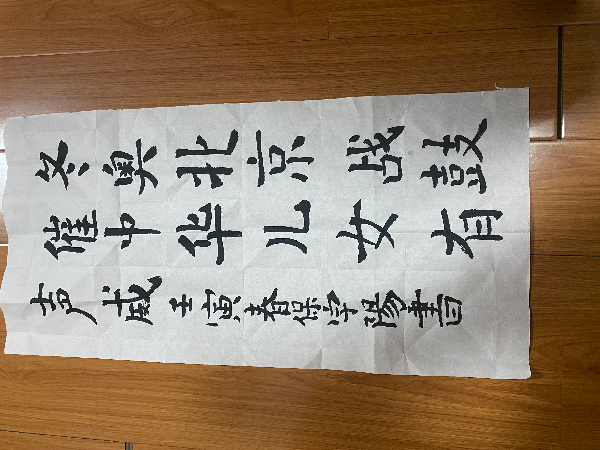 冬奥北京战鼓
催中华儿女有
声威 壬寅春保陽書